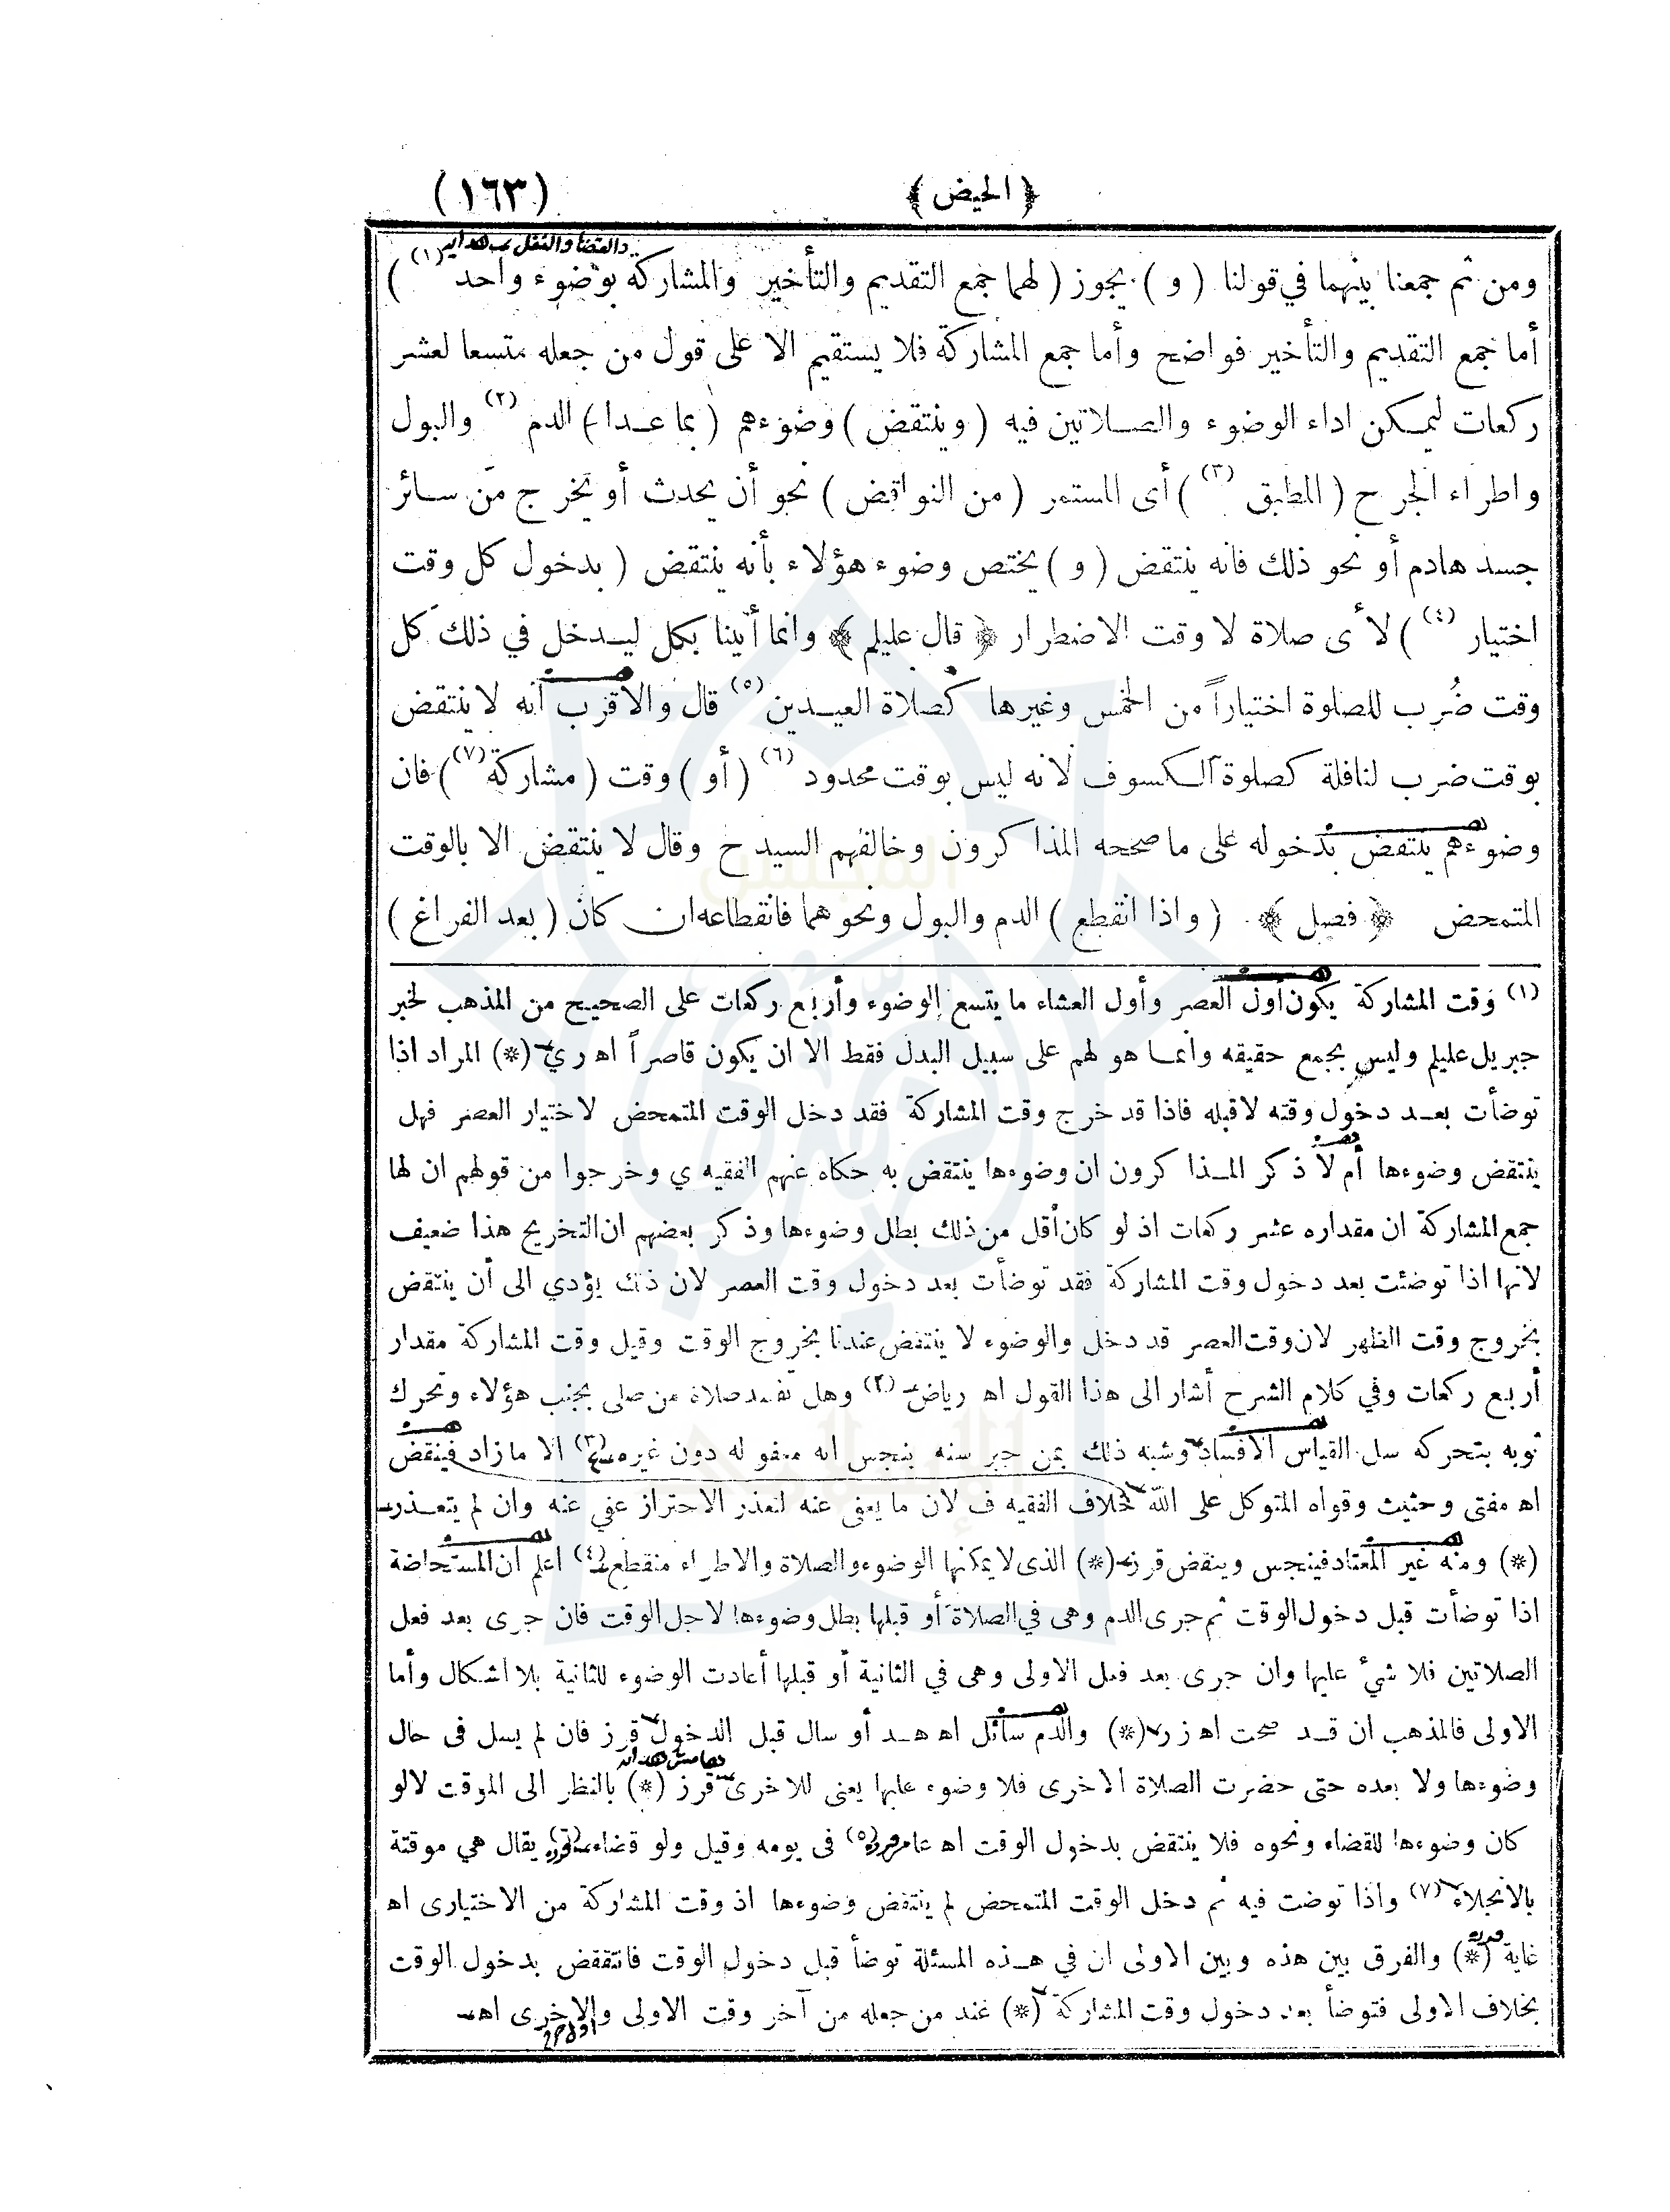 ﴿ الحيض ﴾ (١٦٣)
ومن ثم جمعنا بينهما في قولنا ( و ) يجوز ( لهما جمع التقديم والتأخير والمشاركة بوضوء واحد (١) )
أما جمع التقديم والتأخير فواضح وأما جمع المشاركة فلا يستقيم الا على قول من جعله متسعا لعشر
ركعات ليمكن اداء الوضوء والصلاتين فيه ( وينتقض ) وضوءهم ( بما عدا ) الدم (٢) والبول
واطراء الجرح ( المطبق (٣) ) أى المستمر ( من النواقض ) نحو أن يحدث أو يخرج من سائر
جسد هادم أو نحو ذلك فانه ينتقض ( و ) يختص وضوء هؤلاء بأنه ينتقض ( بدخول كل وقت
اختيار (٤) ) لأى صلاة لا وقت الاضطرار ﴿ قال عليلم ﴾ وانما أتينا بكل ليدخل في ذلك كل
وقت ضُرب للصلوة اختياراً من الخمس وغيرها كصلاة العيدين (٥) قال والاقرب أنه لا ينتقض
بوقت ضرب لنافلة كصلوة الكسوف لانه ليس بوقت محدود (٦) ( أو ) وقت ( مشاركة (٧) ) فان
وضوءهم ينتقض بدخوله على ما صححه المذاكرون وخالفهم السيد ح وقال لا ينتقض الا بالوقت
المتمحض ﴿ فصل ﴾ ( واذا انقطع ) الدم والبول ونحوهما فانقطاعه ان كان ( بعد الفراغ )
(١) وقت المشاركة يكون أول العصر وأول العشاء ما يتسع الوضوء وأربع ركعات على الصحيح من المذهب لخبر
جبريل عليلم وليس بجمع حقيقه وانما هو لهم على سبيل البدل فقط الا ان يكون قاصراً اه ري (*) المراد اذا
توضأت بعد دخول وقته لا قبله فاذا قد خرج وقت المشاركة فقد دخل الوقت المتمحض لاختيار العصر فهل
ينتقض وضوءها أم لا ذكر المذاكرون ان وضوءها ينتقض به حكاه عنهم الفقيه ي وخرجوا من قولهم ان لها
جمع المشاركة ان مقداره عشر ركعات اذ لو كان أقل من ذلك بطل وضوءها وذكر بعضهم ان التخريج هذا ضعيف
لانها اذا توضئت بعد دخول وقت المشاركة فقد توضأت بعد دخول وقت العصر لان ذلك يؤدي الى أن ينتقض
بخروج وقت الظهر لان وقت العصر قد دخل والوضوء لا ينتقض عندنا بخروج الوقت وقيل وقت المشاركة مقدار
أربع ركعات وفي كلام الشرح أشار الى هذا القول اه رياض (٢) وهل تفسد صلاة من صلى بجنب هؤلاء وتحرك
ثوبه بتحركه سل القياس الافساد وشبه ذلك بمن جبر سنه بنجس انه معفو له دون غيره (٣) الا ما زاد فينقض
اه مفتى وحثيث وقواه المتوكل على الله خلاف الفقيه ف لان ما يعفى عنه لتعذر الاحتراز عفي عنه وان لم يتعذر
(*) ومنه غير المعتاد فينجس وينقض قرز (*) الذى لا يمكنها الوضوء والصلاة والاطراء منقطع (٤) اعلم ان المستحاضة
اذا توضأت قبل دخول الوقت ثم جرى الدم وهى في الصلاة أو قبلها بطل وضوءها لاجل الوقت فان جرى بعد فعل
الصلاتين فلا شيء عليها وان جرى بعد فعل الاولى وهى في الثانية أو قبلها أعادت الوضوء للثانية بلا اشكال وأما
الاولى فالمذهب ان قد صحت اه زر (*) والدم سائل اه هد أو سال قبل الدخول قرز فان لم يسل فى حال
وضوءها ولا بعده حتى حضرت الصلاة الاخرى فلا وضوء عليها يعنى للاخرى قرز (*) بالنظر الى الموقت لا لو
كان وضوءها للقضاء ونحوه فلا ينتقض بدخول الوقت اه عامر (٥) فى يومه وقيل ولو قضاء يقال هي موقتة
بالانجلاء (٧) واذا توضت فيه ثم دخل الوقت المتمحض لم ينتقض وضوءها اذ وقت المشاركة من الاختيارى اه
غاية (*) والفرق بين هذه وبين الاولى ان في هذه المسئلة توضأ قبل دخول الوقت فانتقض بدخول الوقت
بخلاف الاولى فتوضأ بعد دخول وقت المشاركة (*) عند من جعله من آخر وقت الاولى والاخرى اهـ